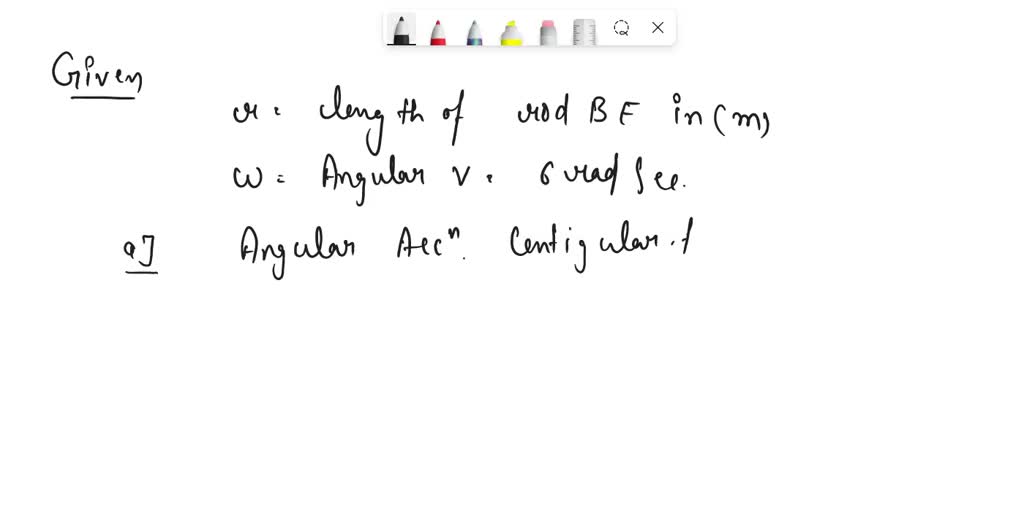 Given
r = length of rod BE in (m)
ω = Angular V = 6 rad/sec.
a] Angular Accⁿ. Centigular.